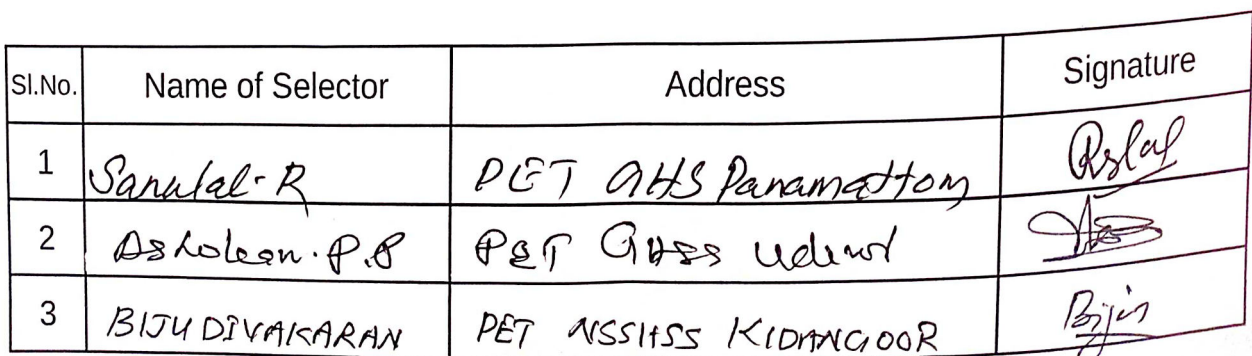 Sl.No. Name of Selector Address Signature
1 Sanulal. R PET GHS Panamattom
2 Asholean. P.P PET GHSS
3 BIJU DIVAKARAN PET NSSHSS KIDANGOOR Bijin